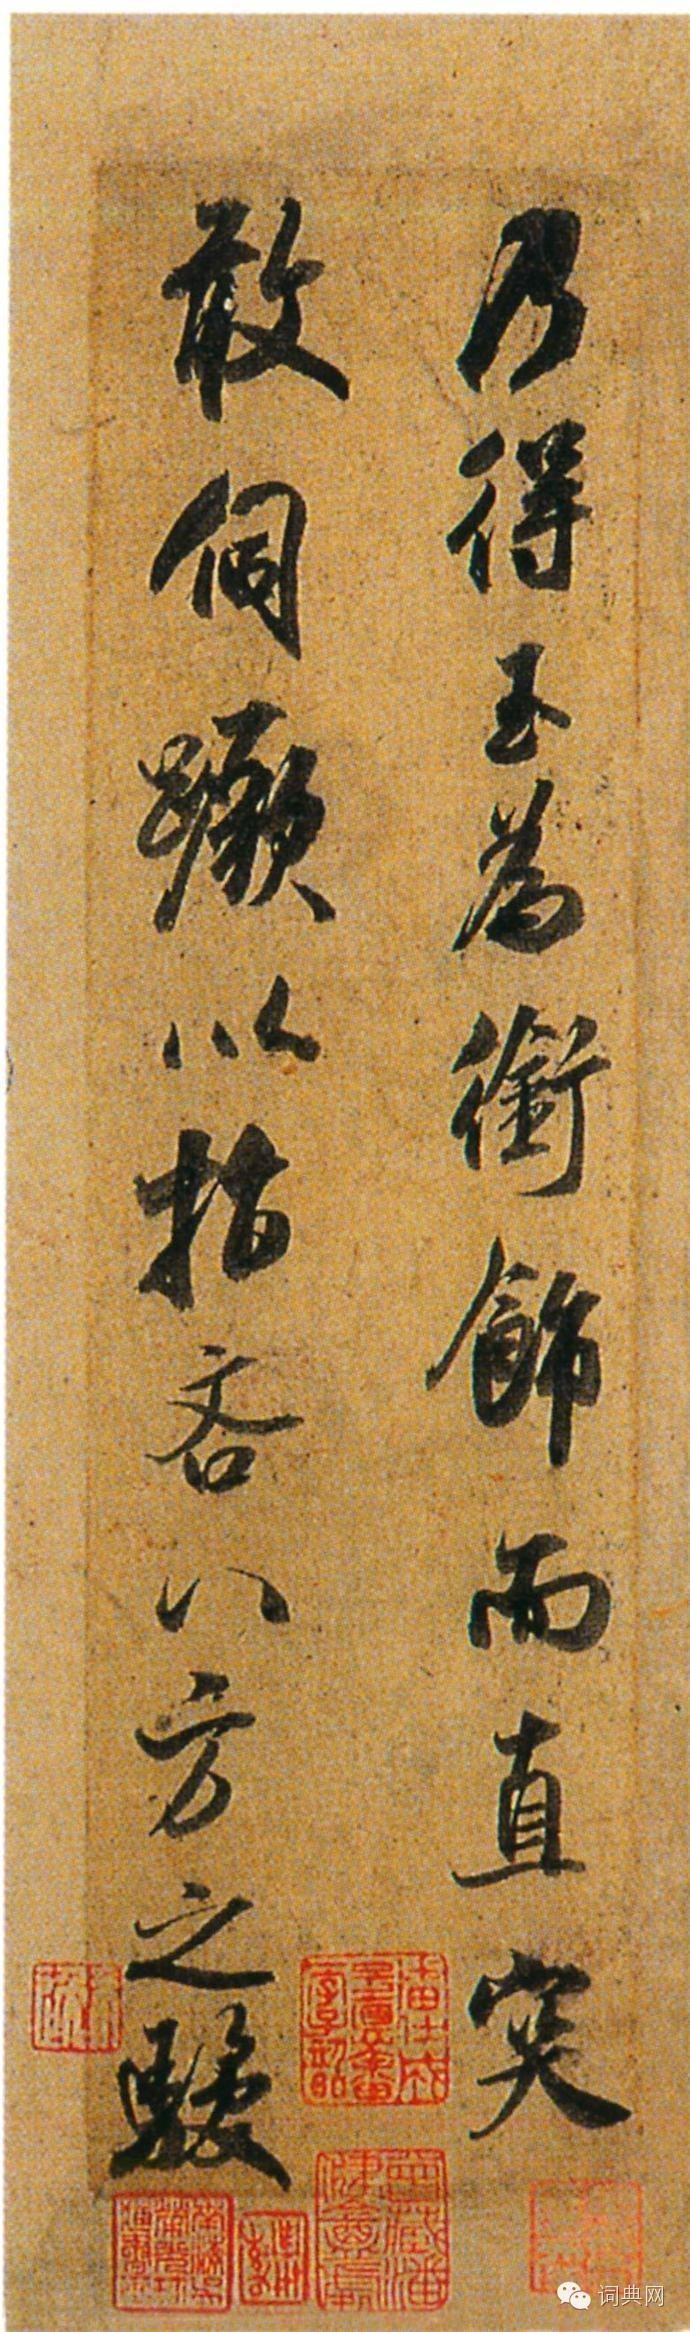 乃得玉為銜飾而直突
敢伺蹶以指吝八方之駿
词典网